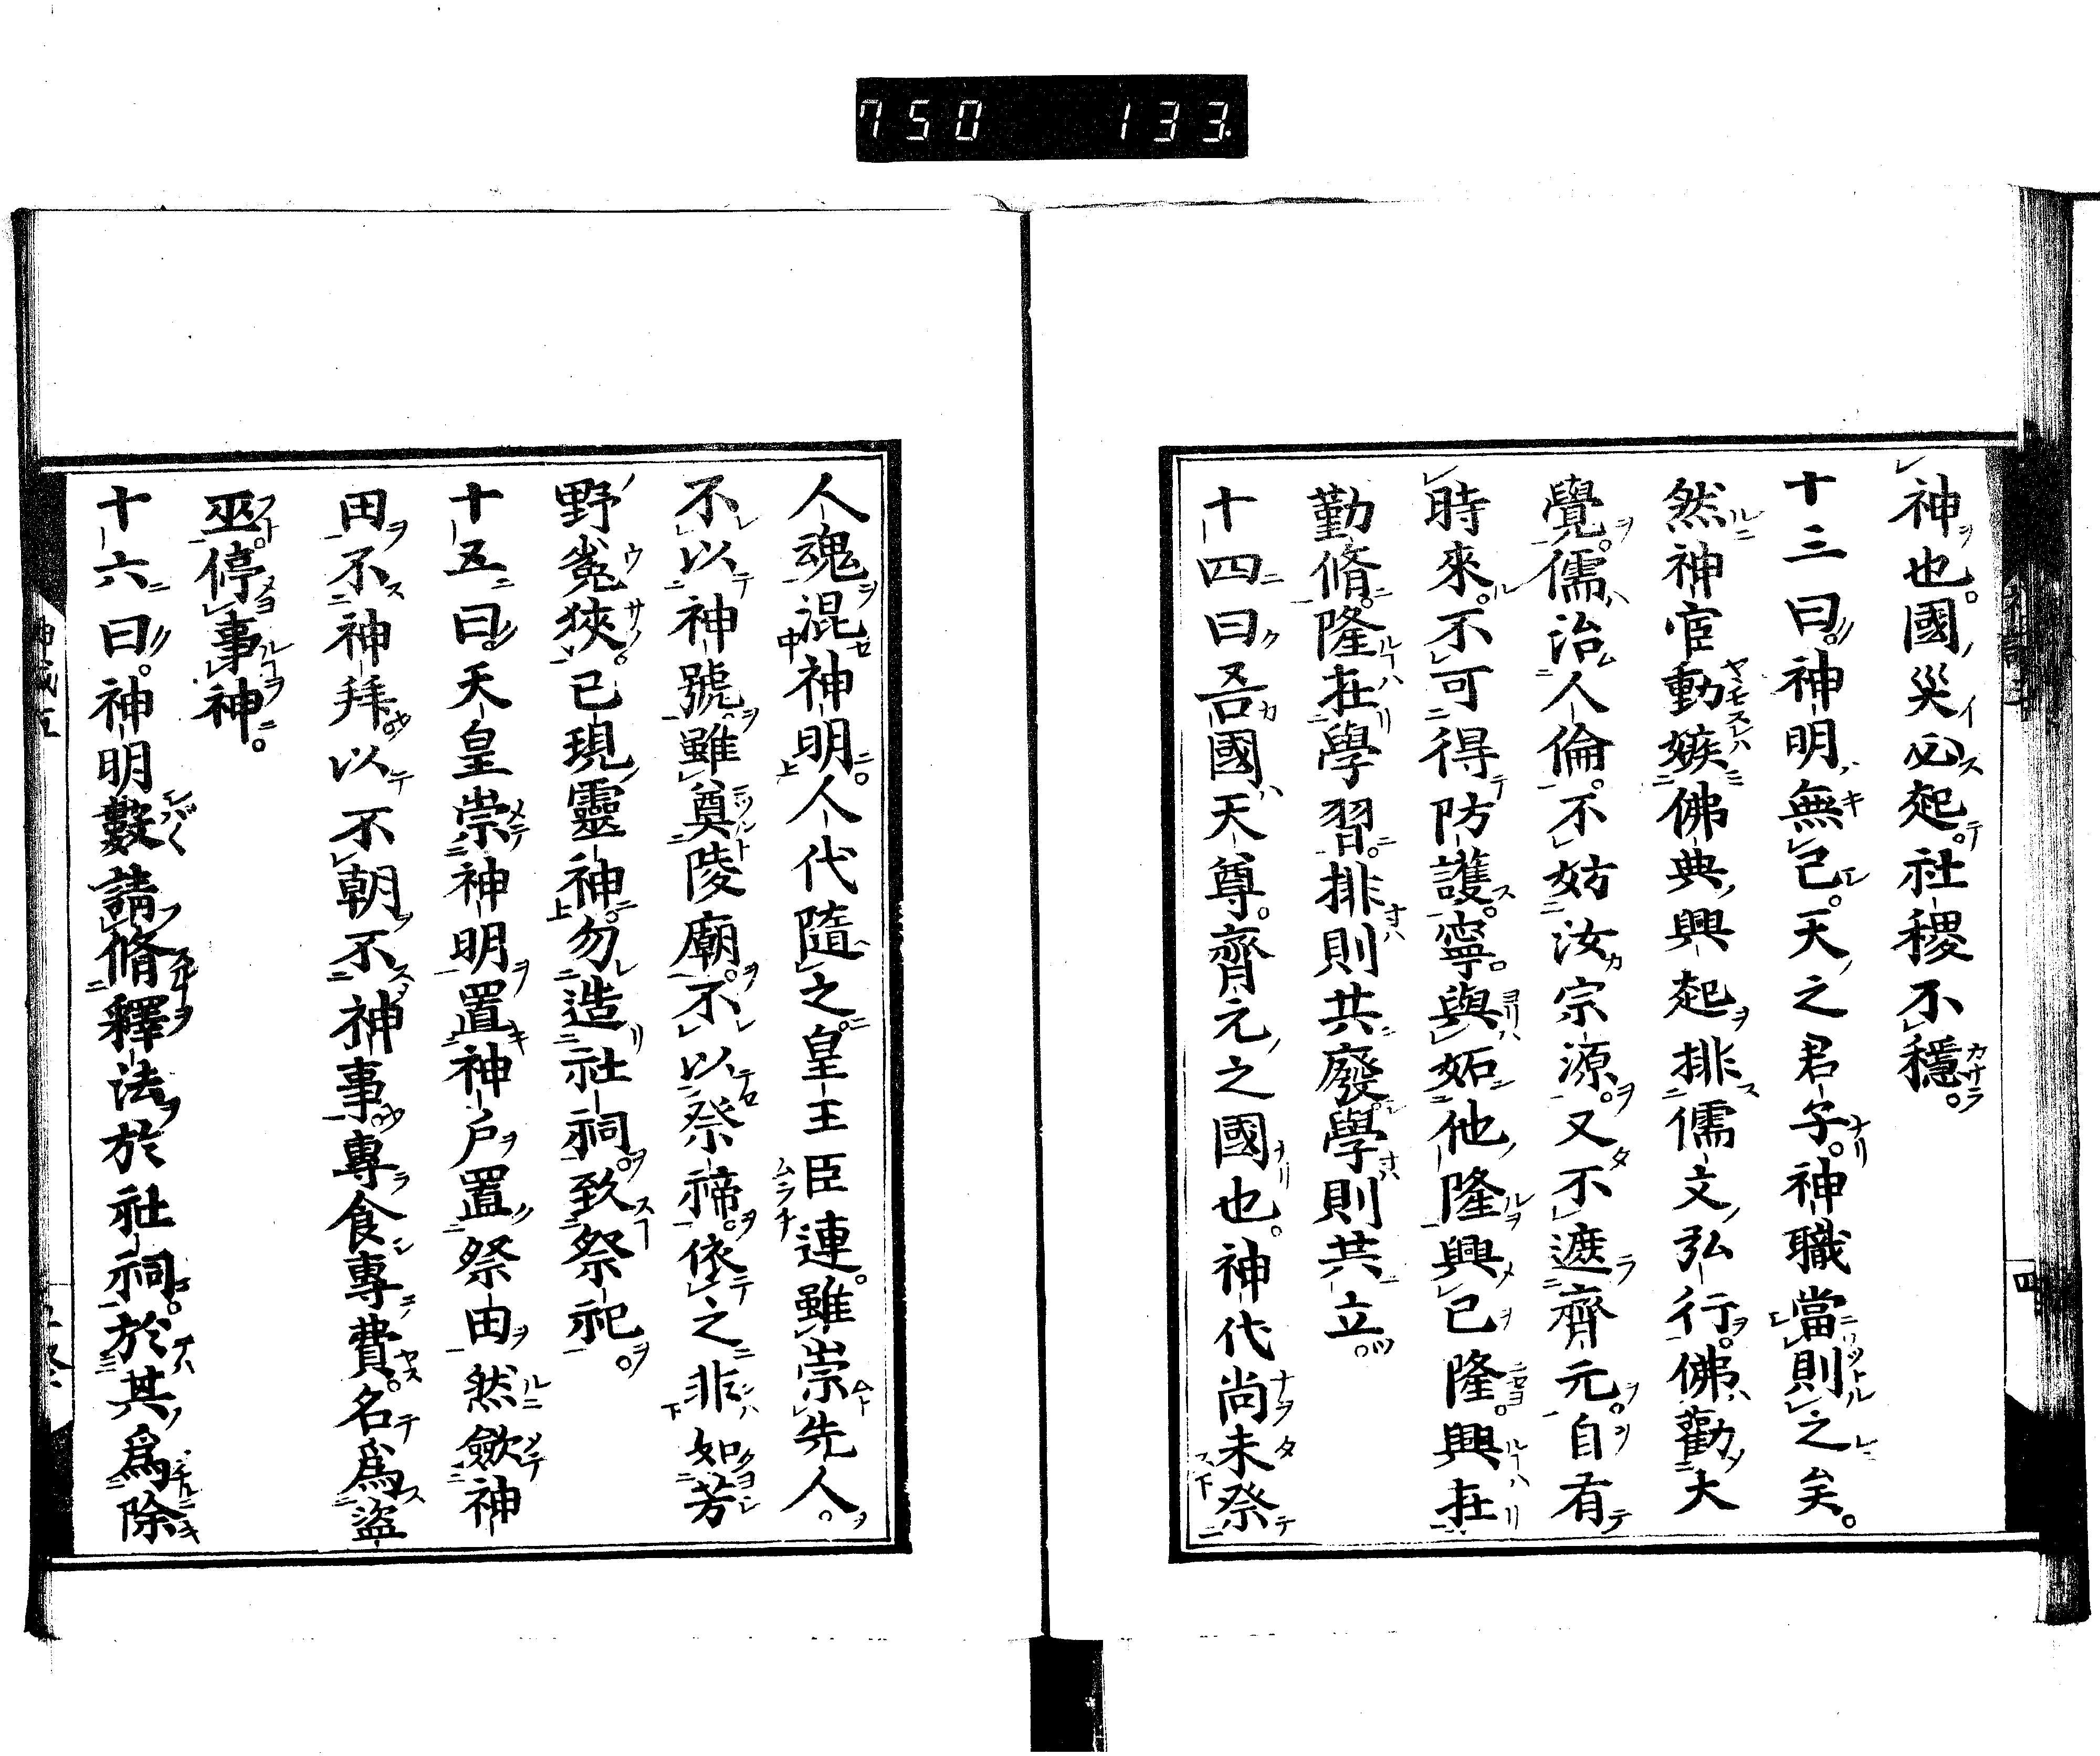 750 133
神也國災必起社稷不穩
十三曰神明無己天之君子神職當則之矣
然神官動嫉佛典興起排儒文弘行佛勸大
覺儒治人倫不妨汝宗源又不遮齊元自有
時來不可得防護寧與妬他隆興已隆興在
勤脩隆在學習排則共廢學則共立
十四曰吾國天尊齊元之國也神代尚未祭
人魂混神明人代隨之皇王臣連雖崇先人
不以神號雖奠陵廟不以祭禘依之非如芳
野菟狹已現靈神勿造社祠致祭祀
十五曰天皇崇神明置神戶置祭田然斂神
田不神拜以不朝不神事專食專費名為盜
巫停事神
十六曰神明數請脩釋法於社祠於其為除